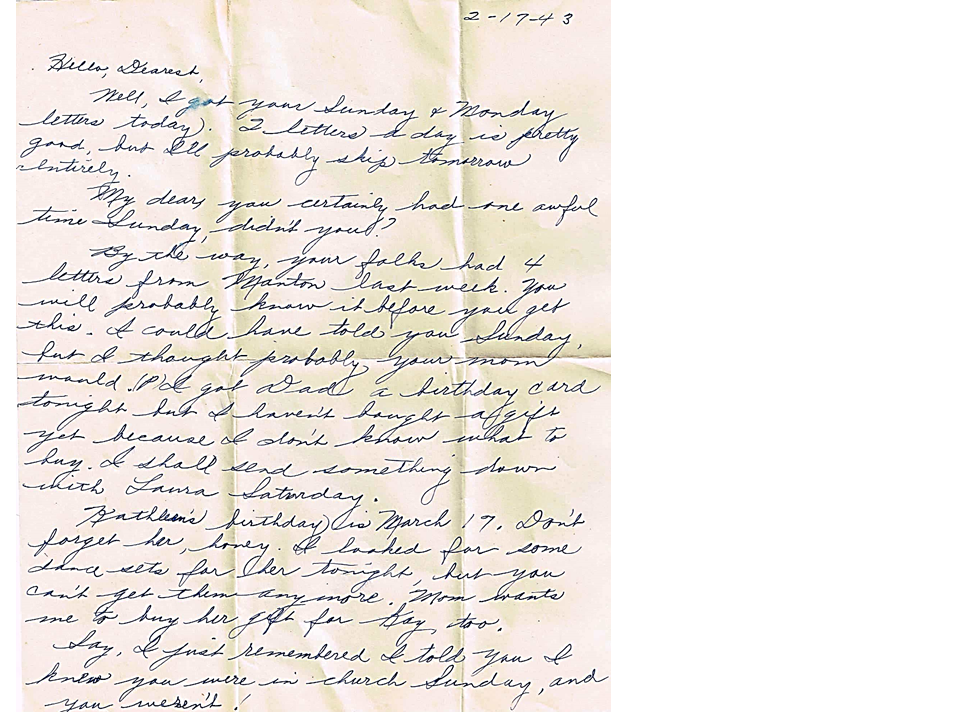 2-17-43
Hello, Dearest,
Well, I got your Sunday & Monday
letters today). 2 letters a day is pretty
good, but I'll probably skip tomorrow
entirely.
My dear, you certainly had one awful
time Sunday, didn't you?
By the way, your folks had 4
letters from Manton last week. You
will probably know it before you get
this. I could have told you Sunday,
but I thought probably your mom
would. (P) I got Dad a birthday card
tonight but I haven't bought a gift
yet because I don't know what to
buy. I shall send something down
with Laura Saturday.
Kathleen's birthday) is March 17. Don't
forget her, honey. I looked for some
dance sets for her tonight, but you
can't get them any more. Mom wants
me to buy her gift for Kay, too.
Say, I just remembered I told you I
knew you were in church Sunday, and
you weren't!